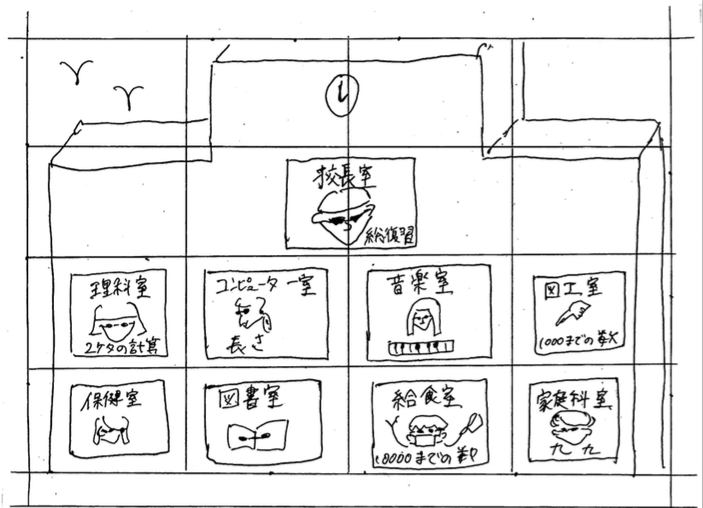 校長室
総復習
理科室
2ケタの計算
コンピューター室
長さ
音楽室
図工室
1000までの数
保健室
図書室
給食室
10000までの数
家庭科室
九九